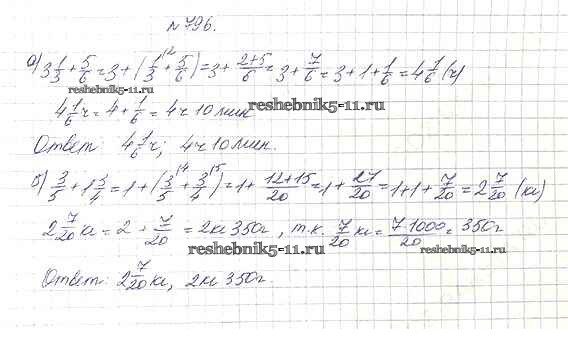 № 796.
а) 3 1/3 + 5/6 = 3 + (1/3^2 + 5/6) = 3 + (2+5)/6 = 3 + 7/6 = 3 + 1 + 1/6 = 4 1/6 (ч)
reshebnik5-11.ru
4 1/6 ч = 4 + 1/6 = 4ч 10 мин
reshebnik5-11.ru
Ответ: 4 1/6 ч; 4ч 10 мин.
б) 3/5 + 1 3/4 = 1 + (3/5^4 + 3/4^5) = 1 + (12+15)/20 = 1 + 27/20 = 1+1+ 7/20 = 2 7/20 (кг)
2 7/20 кг = 2 + 7/20 = 2кг 350г, т.к. 7/20 кг = 7·1000/20 = 350г
reshebnik5-11.ru
reshebnik5-11.ru
Ответ: 2 7/20 кг, 2кг 350г.